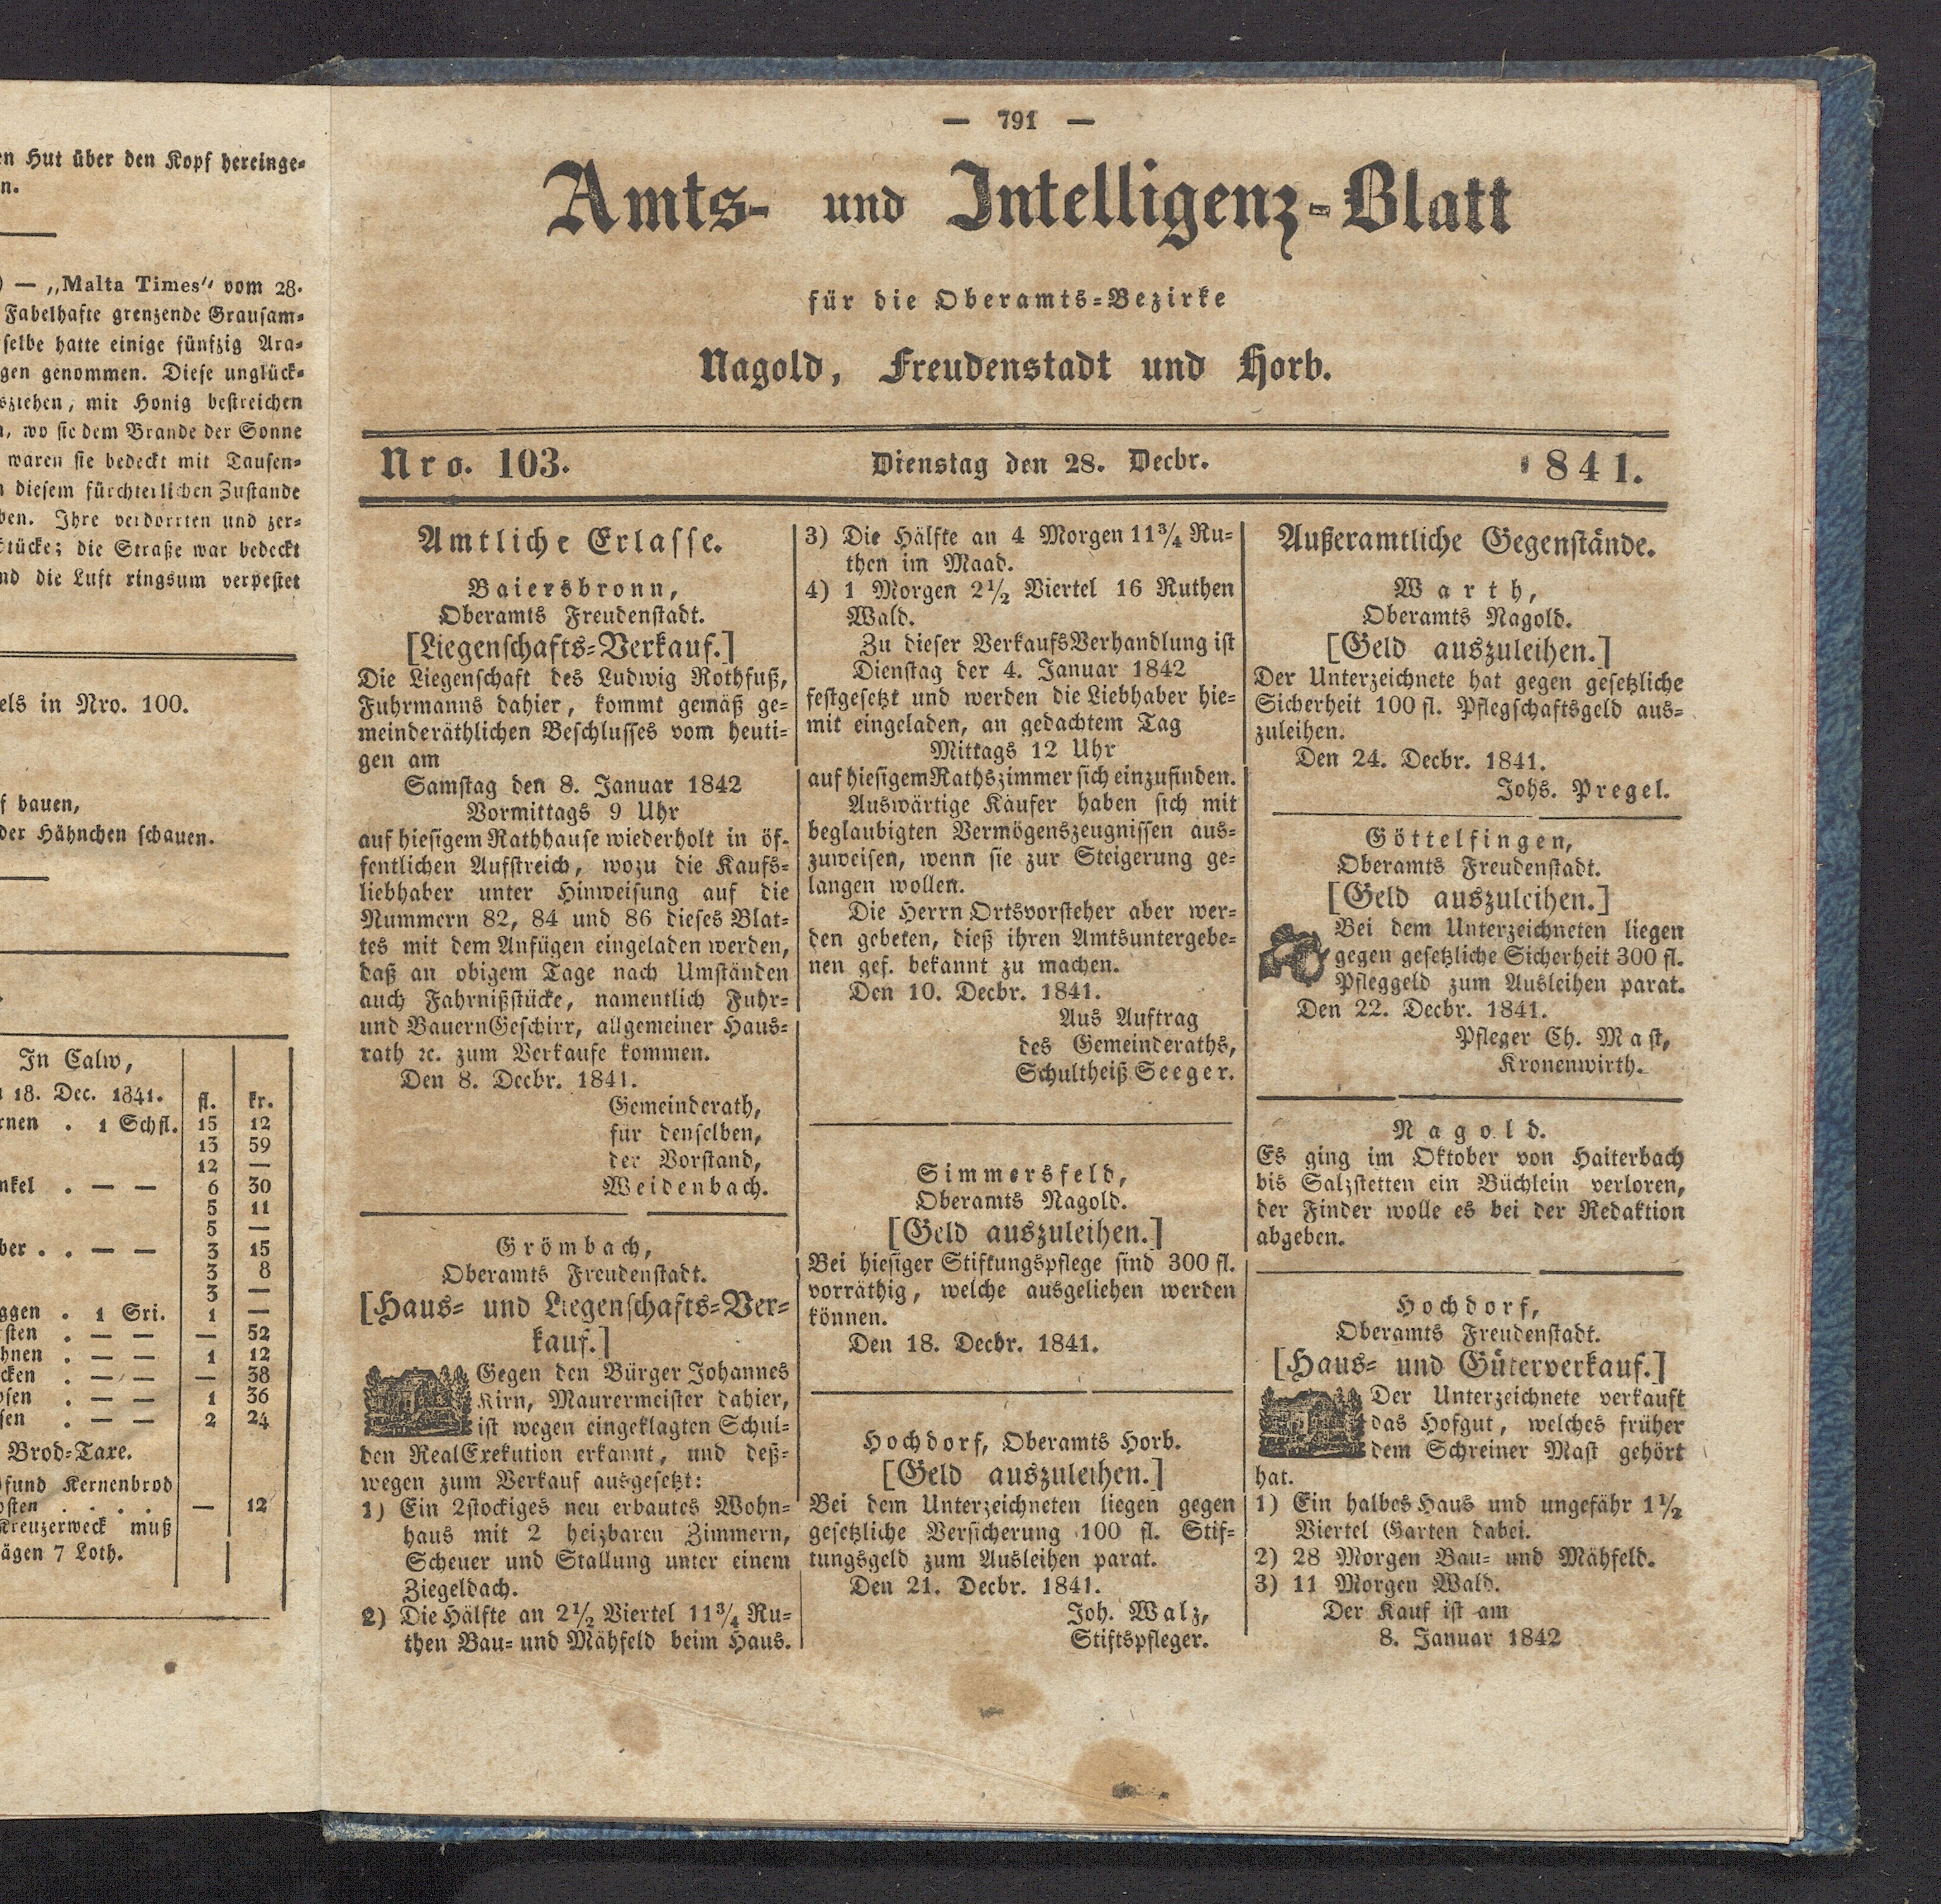 en Hut über den Kopf hereinge-
n.
) — „Malta Times" vom 28.
Fabelhafte grenzende Grausam-
selbe hatte einige fünfzig Ara-
gen genommen. Diese unglück-
sziehen, mit Honig bestreichen
n, wo sie dem Brande der Sonne
waren sie bedeckt mit Tausen-
n diesem fürchterlichen Zustande
ben. Ihre verdorrten und zer-
stücke; die Straße war bedeckt
nd die Luft ringsum verpestet
els in Nro. 100.
f bauen,
der Hähnchen schauen.
In Calw,
18. Dec. 1841. fl. kr.
rnen . 1 Schfl. 15 12
13 59
12 —
nkel . — — 6 30
5 11
5 —
ber . . — — 3 15
3 8
3 —
ggen . 1 Sri. 1 —
sten . — — — 52
hnen . — — 1 12
cken . — — — 38
bsen . — — 1 36
sen . — — 2 24
Brod-Taxe.
fund Kernenbrod
osten . . . . — 12
Kreuzerweck muß
ägen 7 Loth.
— 791 —
Amts- und Intelligenz-Blatt
für die Oberamts-Bezirke
Nagold, Freudenstadt und Horb.
Nro. 103. Dienstag den 28. Decbr. 1841.
Amtliche Erlasse.
Baiersbronn,
Oberamts Freudenstadt.
[Liegenschafts-Verkauf.]
Die Liegenschaft des Ludwig Rothfuß,
Fuhrmanns dahier, kommt gemäß ge-
meinderäthlichen Beschlusses vom heuti-
gen am
Samstag den 8. Januar 1842
Vormittags 9 Uhr
auf hiesigem Rathhause wiederholt in öf-
fentlichen Aufstreich, wozu die Kaufs-
liebhaber unter Hinweisung auf die
Nummern 82, 84 und 86 dieses Blat-
tes mit dem Anfügen eingeladen werden,
daß an obigem Tage nach Umständen
auch Fahrnißstücke, namentlich Fuhr-
und BauernGeschirr, allgemeiner Haus-
rath ꝛc. zum Verkaufe kommen.
Den 8. Decbr. 1841.
Gemeinderath,
für denselben,
der Vorstand,
Weidenbach.
Grömbach,
Oberamts Freudenstadt.
[Haus- und Liegenschafts-Ver-
kauf.]
Gegen den Bürger Johannes
Kirn, Maurermeister dahier,
ist wegen eingeklagten Schul-
den RealExekution erkannt, und deß-
wegen zum Verkauf ausgesetzt:
1) Ein 2stockiges neu erbautes Wohn-
haus mit 2 heizbaren Zimmern,
Scheuer und Stallung unter einem
Ziegeldach.
2) Die Hälfte an 2½ Viertel 11¾ Ru-
then Bau- und Mähfeld beim Haus.
3) Die Hälfte an 4 Morgen 11¾ Ru-
then im Maad.
4) 1 Morgen 2½ Viertel 16 Ruthen
Wald.
Zu dieser VerkaufsVerhandlung ist
Dienstag der 4. Januar 1842
festgesetzt und werden die Liebhaber hie-
mit eingeladen, an gedachtem Tag
Mittags 12 Uhr
auf hiesigem Rathszimmer sich einzufinden.
Auswärtige Käufer haben sich mit
beglaubigten Vermögenszeugnissen aus-
zuweisen, wenn sie zur Steigerung ge-
langen wollen.
Die Herrn Ortsvorsteher aber wer-
den gebeten, dieß ihren Amtsuntergebe-
nen gef. bekannt zu machen.
Den 10. Decbr. 1841.
Aus Auftrag
des Gemeinderaths,
Schultheiß Seeger.
Simmersfeld,
Oberamts Nagold.
[Geld auszuleihen.]
Bei hiesiger Stiftungspflege sind 300 fl.
vorräthig, welche ausgeliehen werden
können.
Den 18. Decbr. 1841.
Hochdorf, Oberamts Horb.
[Geld auszuleihen.]
Bei dem Unterzeichneten liegen gegen
gesetzliche Versicherung 100 fl. Stif-
tungsgeld zum Ausleihen parat.
Den 21. Decbr. 1841.
Joh. Walz,
Stiftspfleger.
Außeramtliche Gegenstände.
Warth,
Oberamts Nagold.
[Geld auszuleihen.]
Der Unterzeichnete hat gegen gesetzliche
Sicherheit 100 fl. Pflegschaftsgeld aus-
zuleihen.
Den 24. Decbr. 1841.
Johs. Pregel.
Göttelfingen,
Oberamts Freudenstadt.
[Geld auszuleihen.]
Bei dem Unterzeichneten liegen
gegen gesetzliche Sicherheit 300 fl.
Pfleggeld zum Ausleihen parat.
Den 22. Decbr. 1841.
Pfleger Ch. Mast,
Kronenwirth.
Nagold.
Es ging im Oktober von Haiterbach
bis Salzstetten ein Büchlein verloren,
der Finder wolle es bei der Redaktion
abgeben.
Hochdorf,
Oberamts Freudenstadt.
[Haus- und Güterverkauf.]
Der Unterzeichnete verkauft
das Hofgut, welches früher
dem Schreiner Mast gehört
hat.
1) Ein halbes Haus und ungefähr 1½
Viertel Garten dabei.
2) 28 Morgen Bau- und Mähfeld.
3) 11 Morgen Wald.
Der Kauf ist am
8. Januar 1842